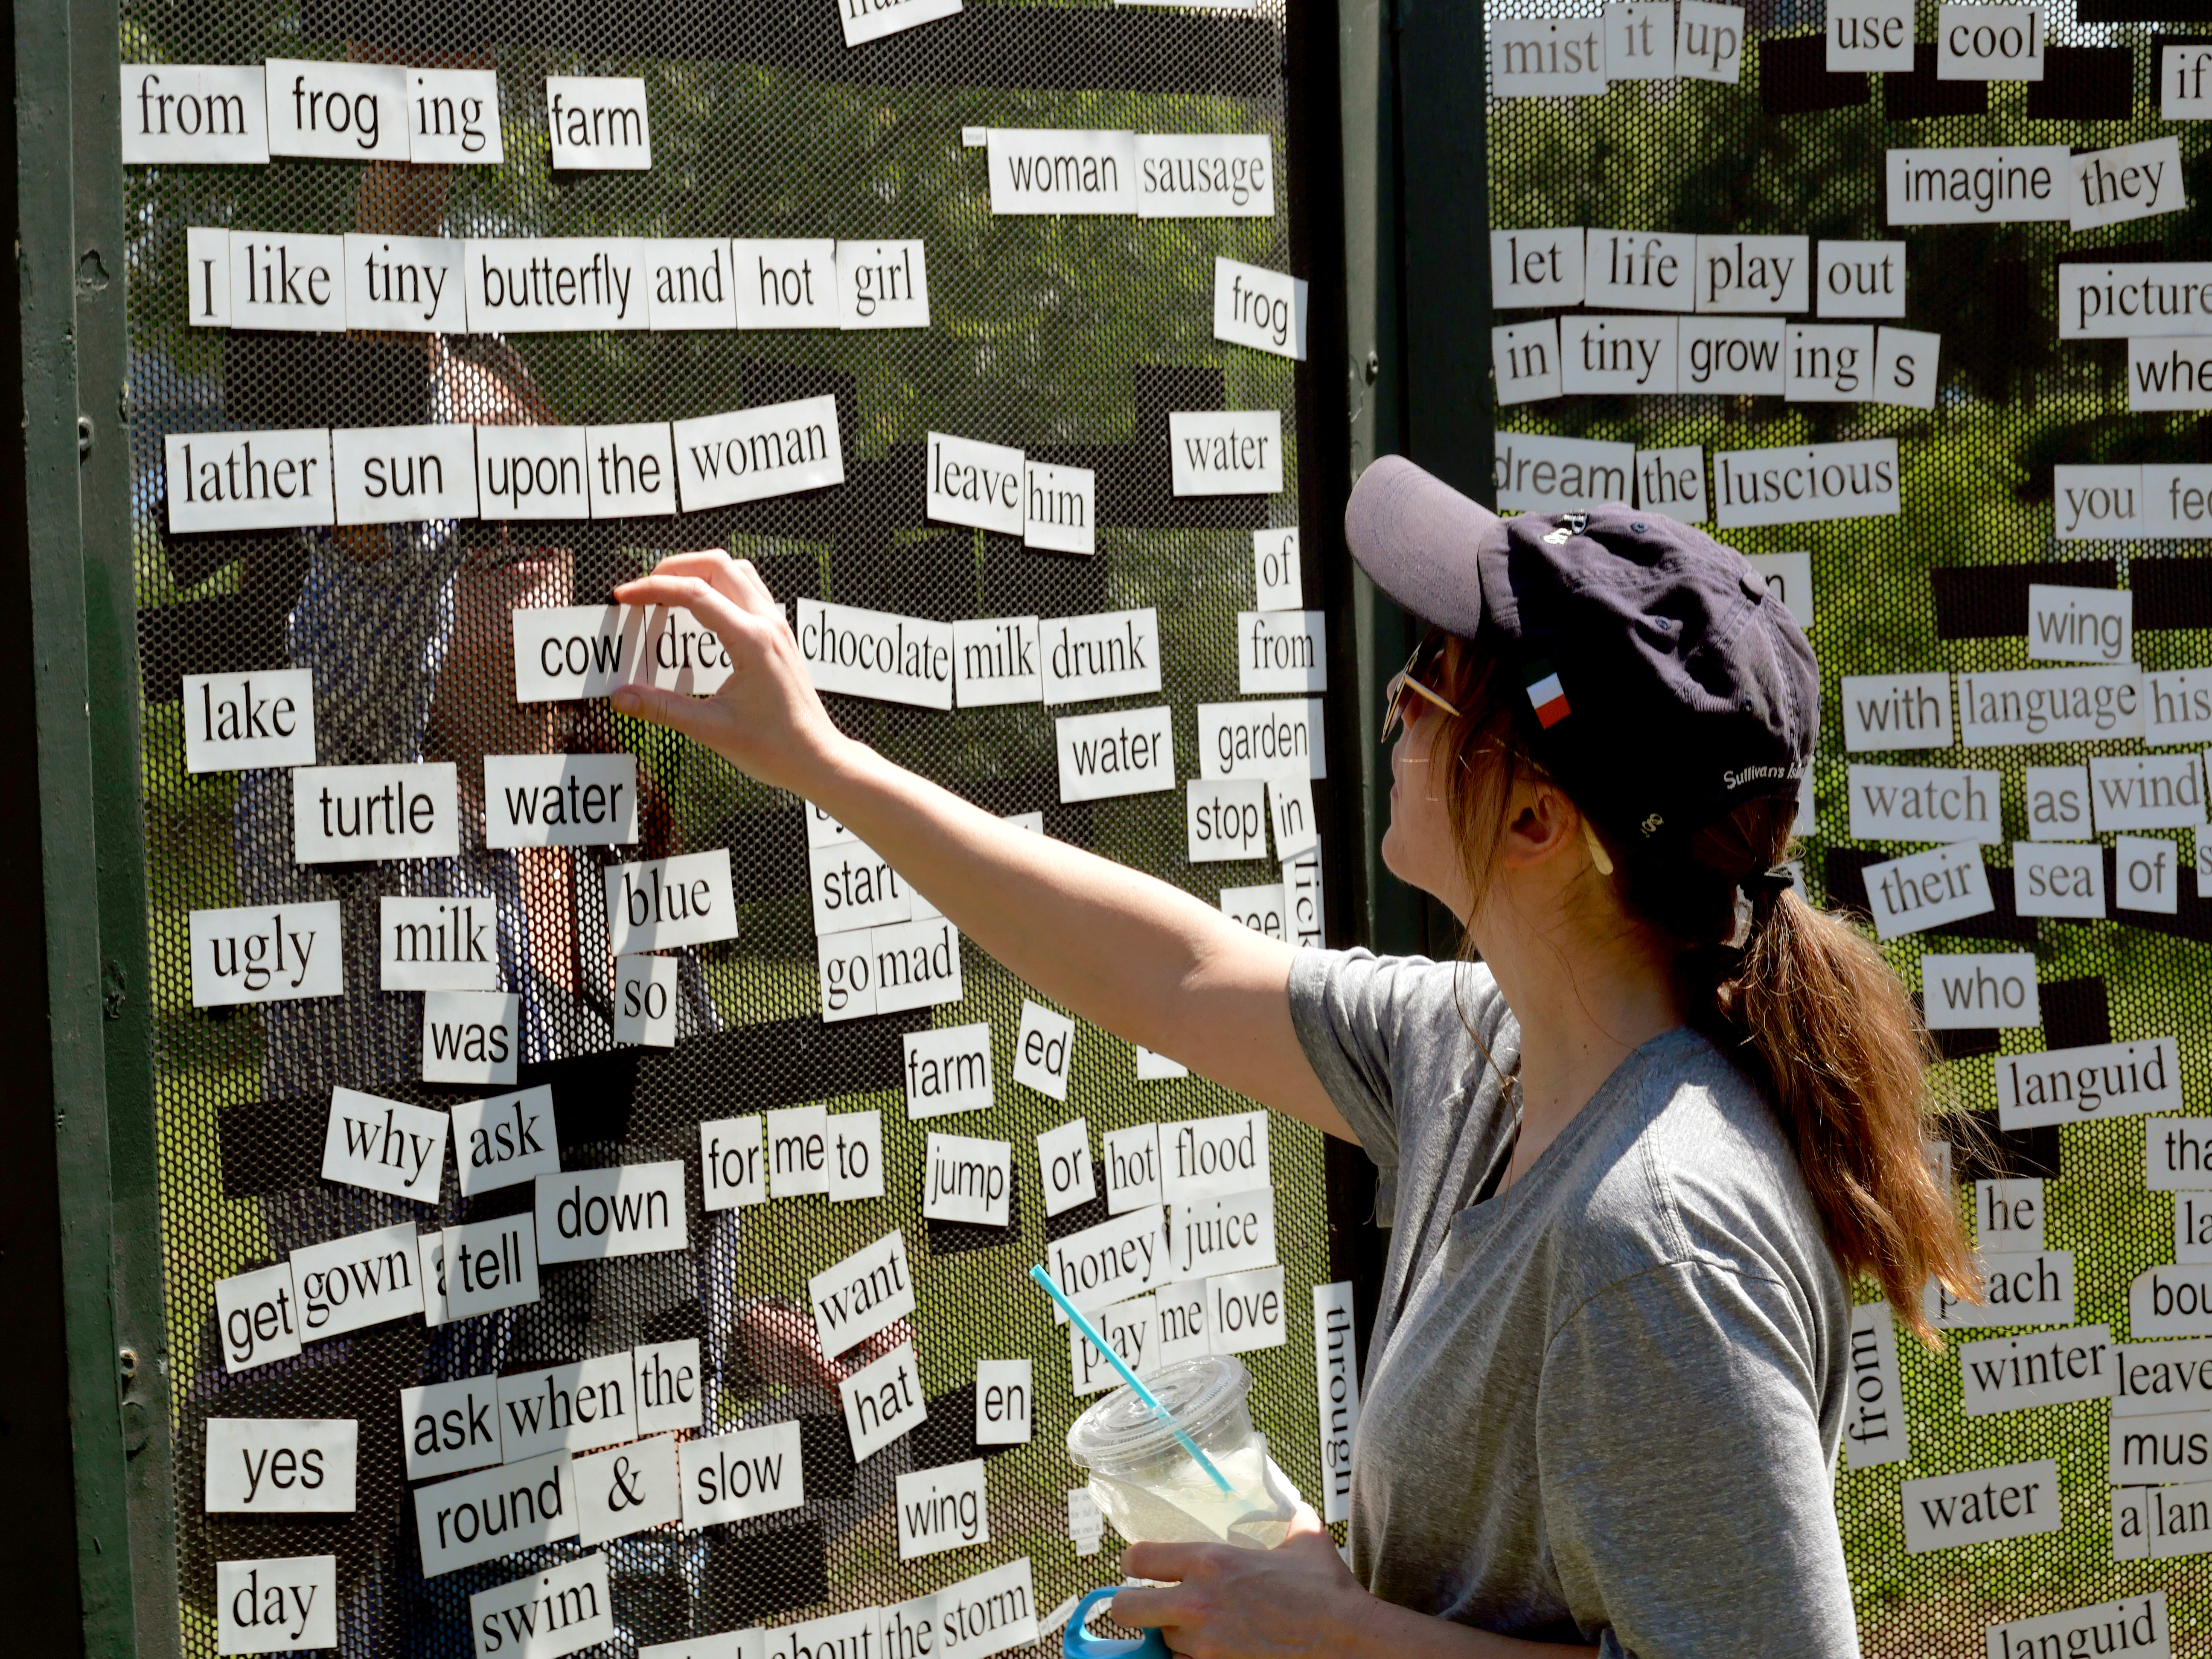 from frog ing farm
woman sausage
I like tiny butterfly and hot girl
frog
lather sun upon the woman
leave him
water
of
cow chocolate milk drunk
from
lake
water
garden
turtle water
stop in
lick
blue
start
ugly milk
so
go mad
was
farm ed
why ask
for me to
jump
or hot flood
down
honey juice
get gown tell
want
play me love
through
ask when the
hat
en
yes
round & slow
wing
day
swim
about the storm
mist it up
use cool
if
imagine they
let life play out
picture
in tiny grow ing s
dream the luscious
you
wing
with language his
watch as wind
their sea of
who
languid
he
winter leave
from
water
a
languid
Sullivan's